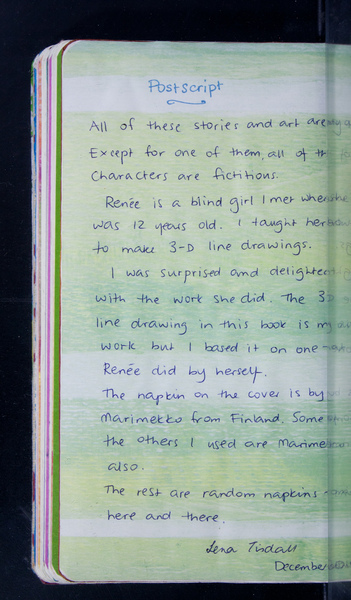 Postscript
All of these stories and art are my
Except for one of them, all of the
characters are fictitious.
Renée is a blind girl I met when she
was 12 years old. I taught her how
to make 3-D line drawings.
I was surprised and delighted
with the work she did. The 3D
line drawing in this book is my
work but I based it on one
Renée did by herself.
The napkin on the cover is by
Marimekko from Finland. Some
the others I used are Marimekko
also.
The rest are random napkins
here and there.
Lena Tisdall
December